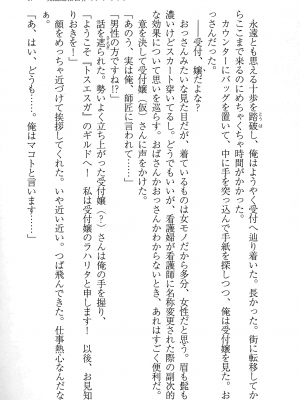 永遠とも思える十歩を踏破し、俺はようやく受付へ辿り着いた。長かった。街に転移してか
らここまで来るのにめちゃくちゃ時間がかかった。
カウンターにバッグを置いて、中に手を突っ込んで手紙を探しつつ、俺は受付嬢を見た。
――受付、嬢だよな？
おっさんみたいな見た目だが、着ているのは女モノだから多分、女性だと思う。眉も髭も
濃いけどスカート穿いてるし。どうでもいいが、看護婦が看護師に名称変更された際の副次的
な効果について思いを馳せる。おばさんかおっさんかわからないとき、あれはすごく便利だ。
意を決して受付嬢（仮）さんに声をかけた。
「あの、すみません。俺、師匠に言われて――」
「男性の方ですね!?」
話を遮られた。勢いよく立ち上がった受付嬢（？）さんは俺の手を握り、
「ようこそ『トスエスガ』のギルドへ！　私は受付嬢のラハリタと申します！　以後、お見知
りおきを！」
顔をめっちゃ近づけて挨拶してくれた。いや近い近い。つば飛んできた。仕事熱心なんだな
ぁ。
「あ、はい、どうも……。俺はマコトと言います……」